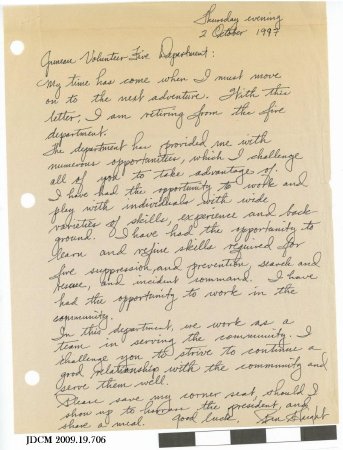 Thursday evening
2 October 1997
Juneau Volunteer Fire Department:
My time has come when I must move
on to the next adventure. With this
letter, I am retiring from the fire
department.
The department has provided me with
numerous opportunities, which I challenge
all of you to take advantage of.
I have had the opportunity to work and
play with individuals with wide
varieties of skills, experience and back-
ground. I have had the opportunity to
learn and refine skills required for
fire suppression and prevention, search and
rescue, and incident command. I have
had the opportunity to work in the
community.
In this department, we work as a
team in serving the community. I
challenge you to strive to continue a
good relationship with the community and
serve them well.
Please save my corner seat, should I
show up to harrass the president, and
share a meal. Good luck,
JDCM 2009.19.706